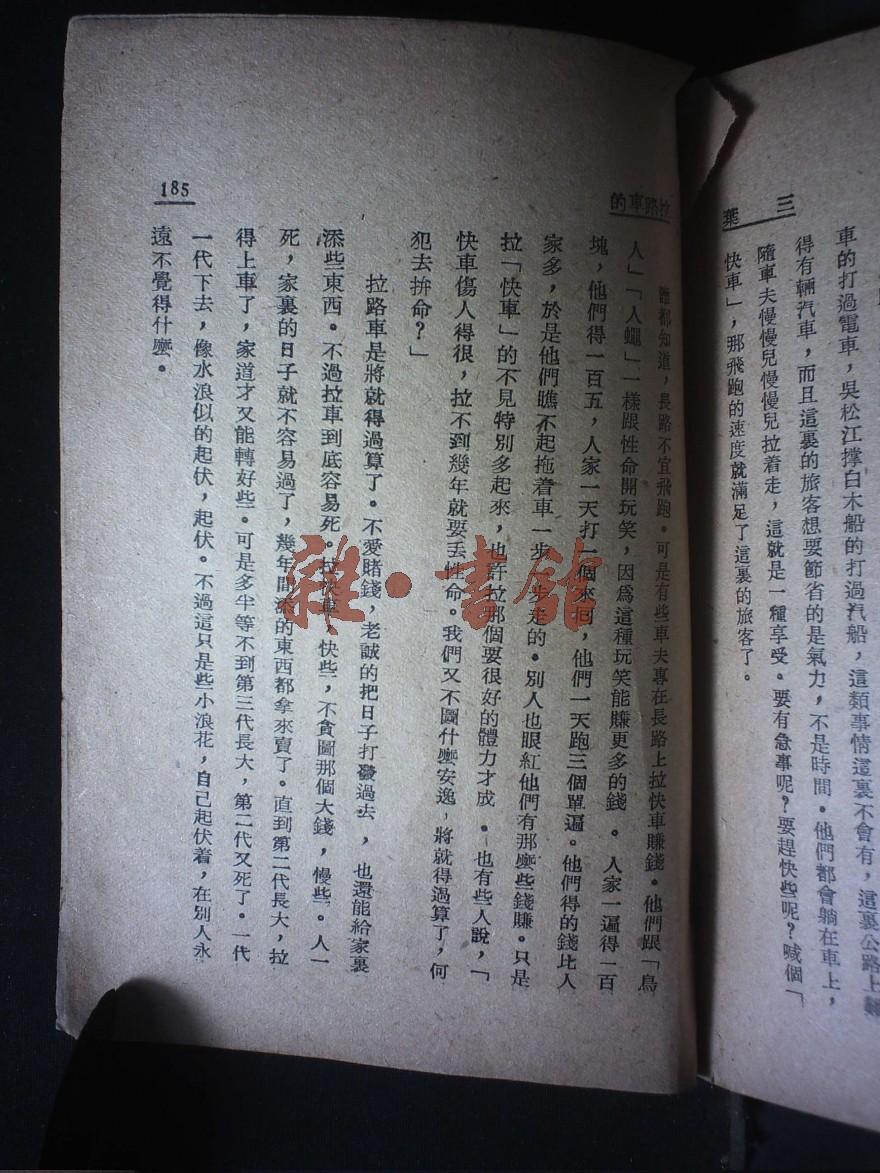 三葉
車的打過電車，吳松江撐白木船的打過汽船，這類事情這裏不會有，這裏公路上
得有輛汽車，而且這裏的旅客想要節省的是氣力，不是時間。他們都會躺在車上，
隨車夫慢慢兒慢慢兒拉着走，這就是一種享受。要有急事呢？要趕快些呢？喊個「
快車」，那飛跑的速度就滿足了這裏的旅客了。
拉路車的
誰都知道，長路不宜飛跑。可是有些車夫專在長路上拉快車賺錢。他們跟「鳥
人」「人蠟」一樣跟性命開玩笑，因爲這種玩笑能賺更多的錢。人家一遍得一百
塊，他們得一百五，人家一天打一個來回，他們一天跑三個單遍。他們得的錢比人
家多，於是他們瞧不起拖着車一步一步走的。別人也眼紅他們有那麼些錢賺。只是
拉「快車」的不見特別多起來，也許拉那個要很好的體力才成。也有些人說，「
快車傷人得很，拉不到幾年就要丟性命。我們又不圖什麼安逸，將就得過算了，何
犯去拚命？」
拉路車是將就得過算了。不愛賭錢，老誠的把日子打發過去，也還能給家裏
添些東西。不過拉車到底容易死。拉快車，快些，不貪圖那個大錢，慢些。人一
死，家裏的日子就不容易過了，幾年間添的東西都拿來賣了。直到第二代長大，拉
得上車了，家道才又能轉好些。可是多半等不到第三代長大，第二代又死了。一代
一代下去，像水浪似的起伏，起伏。不過這只是些小浪花，自己起伏着，在別人永
遠不覺得什麼。
185
雜·書館